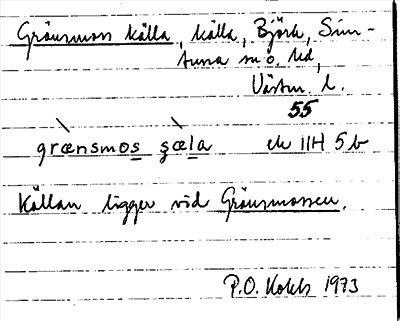 Gränsmoss källa, källa, Björk, Sim-
tuna sn o. hd,
Västm. l.
55
grænsmos şæla ek 11H 5b
Källan ligger vid Gränsmossen.
P.O. 1973